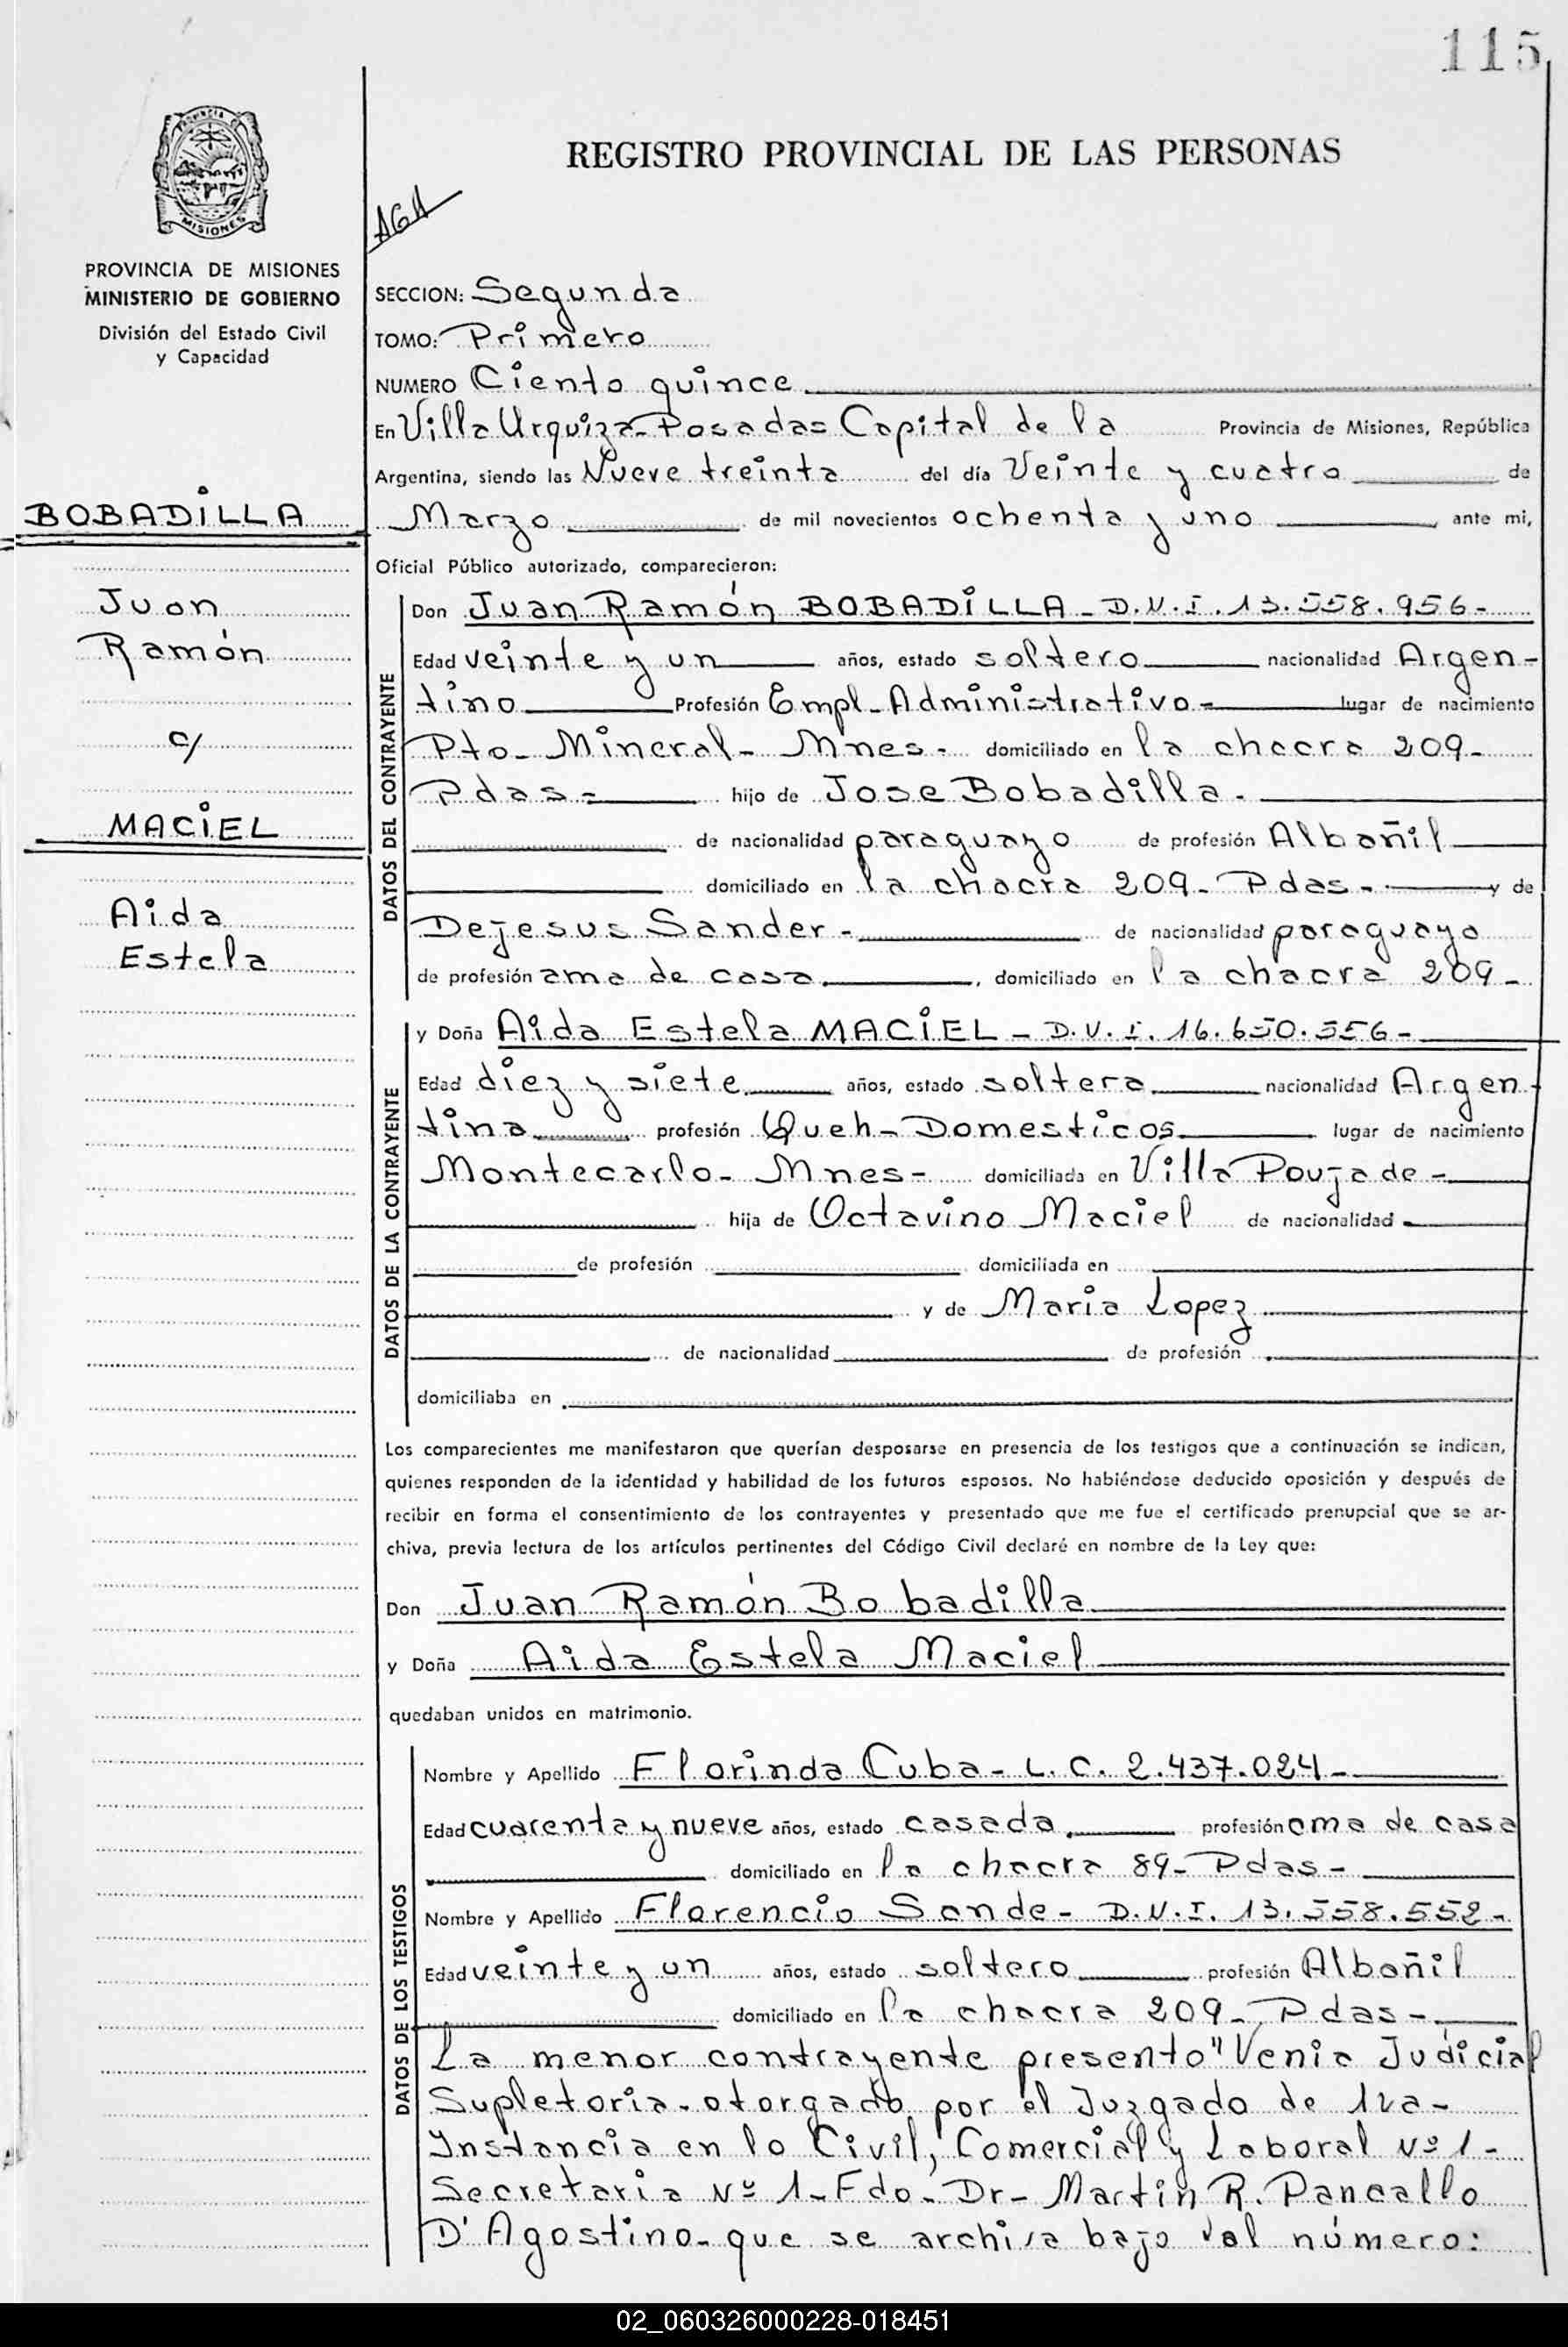 115
REGISTRO PROVINCIAL DE LAS PERSONAS
PROVINCIA DE MISIONES
MINISTERIO DE GOBIERNO
División del Estado Civil
y Capacidad
BOBADILLA
Juan
Ramón
c/
MACIEL
Aida
Estela
AGA
SECCION: Segunda
TOMO: Primero
NUMERO Ciento quince
En Villa Urquiza-Posadas Capital de la Provincia de Misiones, República
Argentina, siendo las Nueve treinta del día Veinte y cuatro de
Marzo de mil novecientos ochenta y uno, ante mi,
Oficial Público autorizado, comparecieron:
DATOS DEL CONTRAYENTE
Don Juan Ramón BOBADILLA - D.N.I. 13.558.956-
Edad veinte y un años, estado soltero nacionalidad Argen-
tino Profesión Empl-Administrativo- lugar de nacimiento
Pto- Mineral- Mnes- domiciliado en la chacra 209-
Pdas- hijo de Jose Bobadilla-
de nacionalidad paraguayo de profesión Albañil
domiciliado en la chacra 209- Pdas- y de
Dejesus Sander- de nacionalidad paraguaya
de profesión ama de casa, domiciliado en la chacra 209-
DATOS DE LA CONTRAYENTE
y Doña Aida Estela MACIEL - D.N.I. 16.650.556-
Edad diez y siete años, estado soltera nacionalidad Argen-
tina profesión Queh-Domesticos lugar de nacimiento
Montecarlo- Mnes- domiciliada en Villa Poujade-
hija de Octavino Maciel de nacionalidad
de profesión domiciliada en
y de Maria Lopez
de nacionalidad de profesión
domiciliaba en
Los comparecientes me manifestaron que querían desposarse en presencia de los testigos que a continuación se indican,
quienes responden de la identidad y habilidad de los futuros esposos. No habiéndose deducido oposición y después de
recibir en forma el consentimiento de los contrayentes y presentado que me fue el certificado prenupcial que se ar-
chiva, previa lectura de los artículos pertinentes del Código Civil declaré en nombre de la Ley que:
Don Juan Ramón Bobadilla
y Doña Aida Estela Maciel
quedaban unidos en matrimonio.
DATOS DE LOS TESTIGOS
Nombre y Apellido Florinda Cuba- L.C. 2.437.024-
Edad cuarenta y nueve años, estado casada profesión ama de casa
domiciliado en la chacra 89- Pdas-
Nombre y Apellido Florencio Sande- D.N.I. 13.558.552-
Edad veinte y un años, estado soltero profesión Albañil
domiciliado en la chacra 209- Pdas-
La menor contrayente presento "Venia Judicial
Supletoria. otorgado por el Juzgado de 1ra-
Instancia en lo Civil, Comercial y Laboral Nº 1-
Secretaria Nº 1- Fdo- Dr- Martin R. Pancallo
D'Agostino- que se archiva bajo al número:
02_060326000228-018451